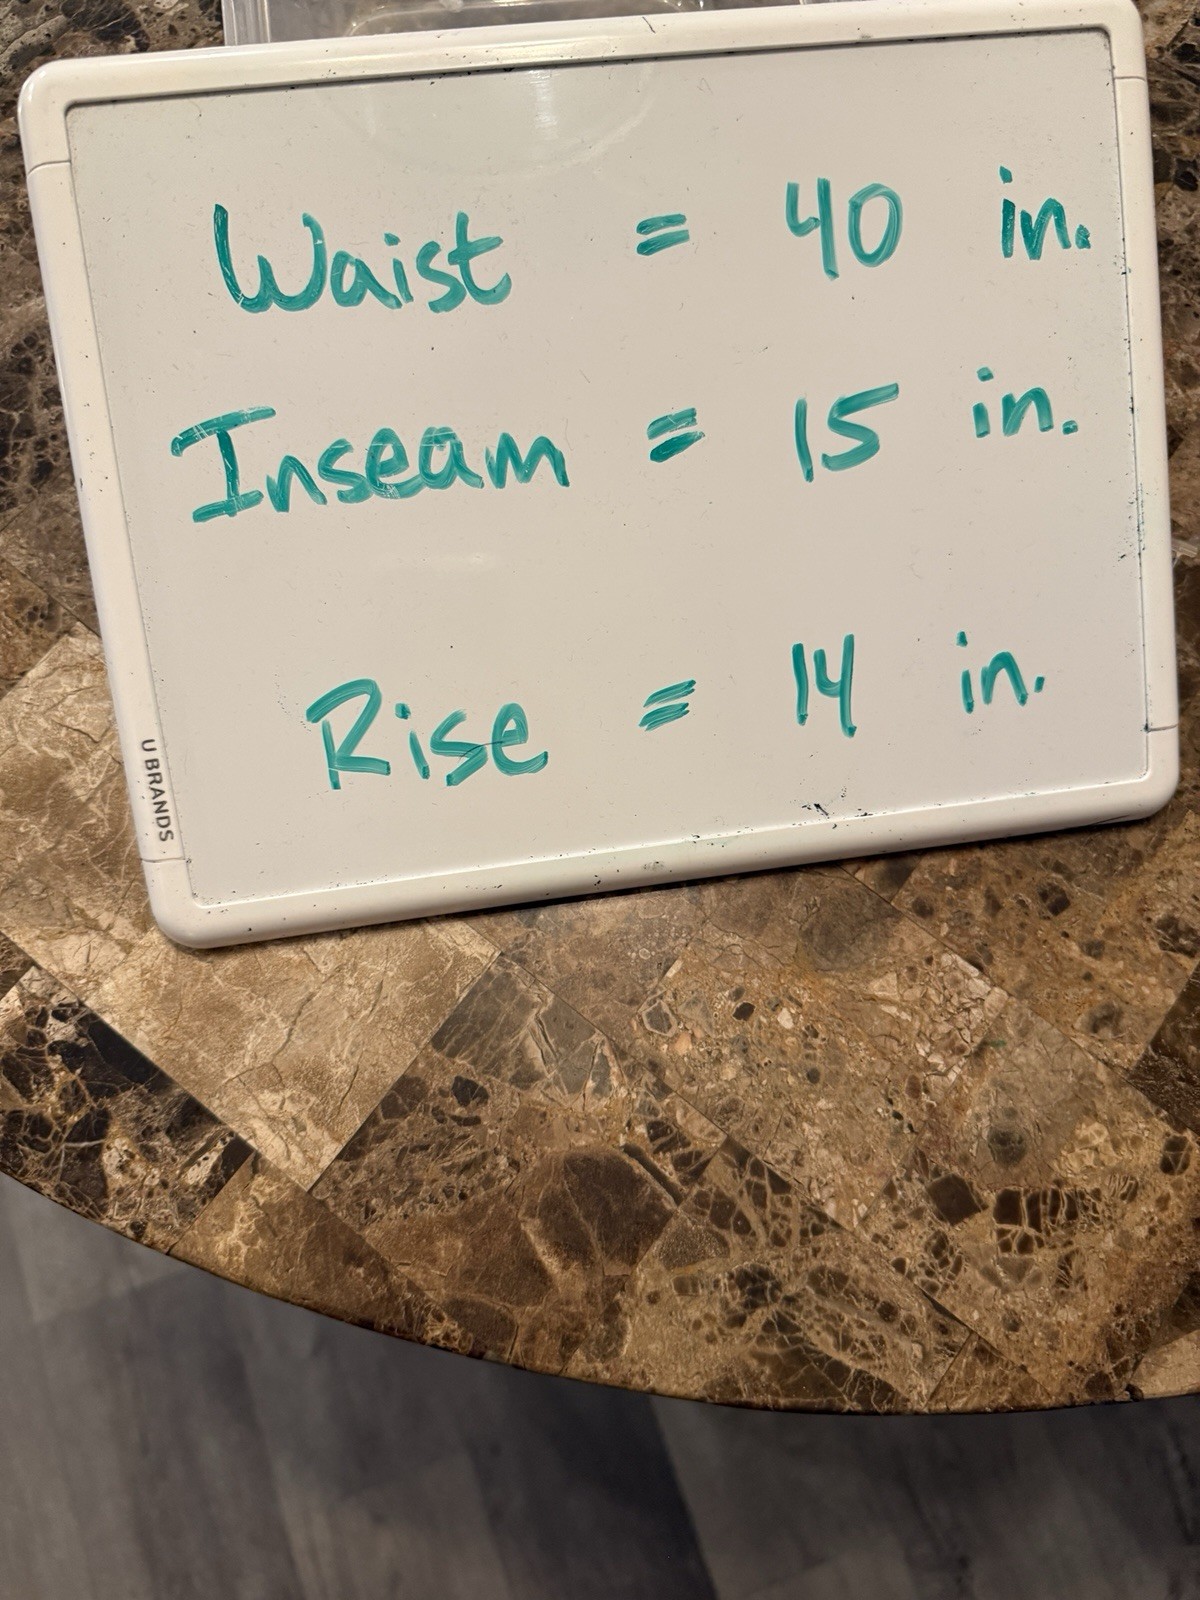 Waist = 40 in.
Inseam = 15 in.
Rise = 14 in.
U BRANDS